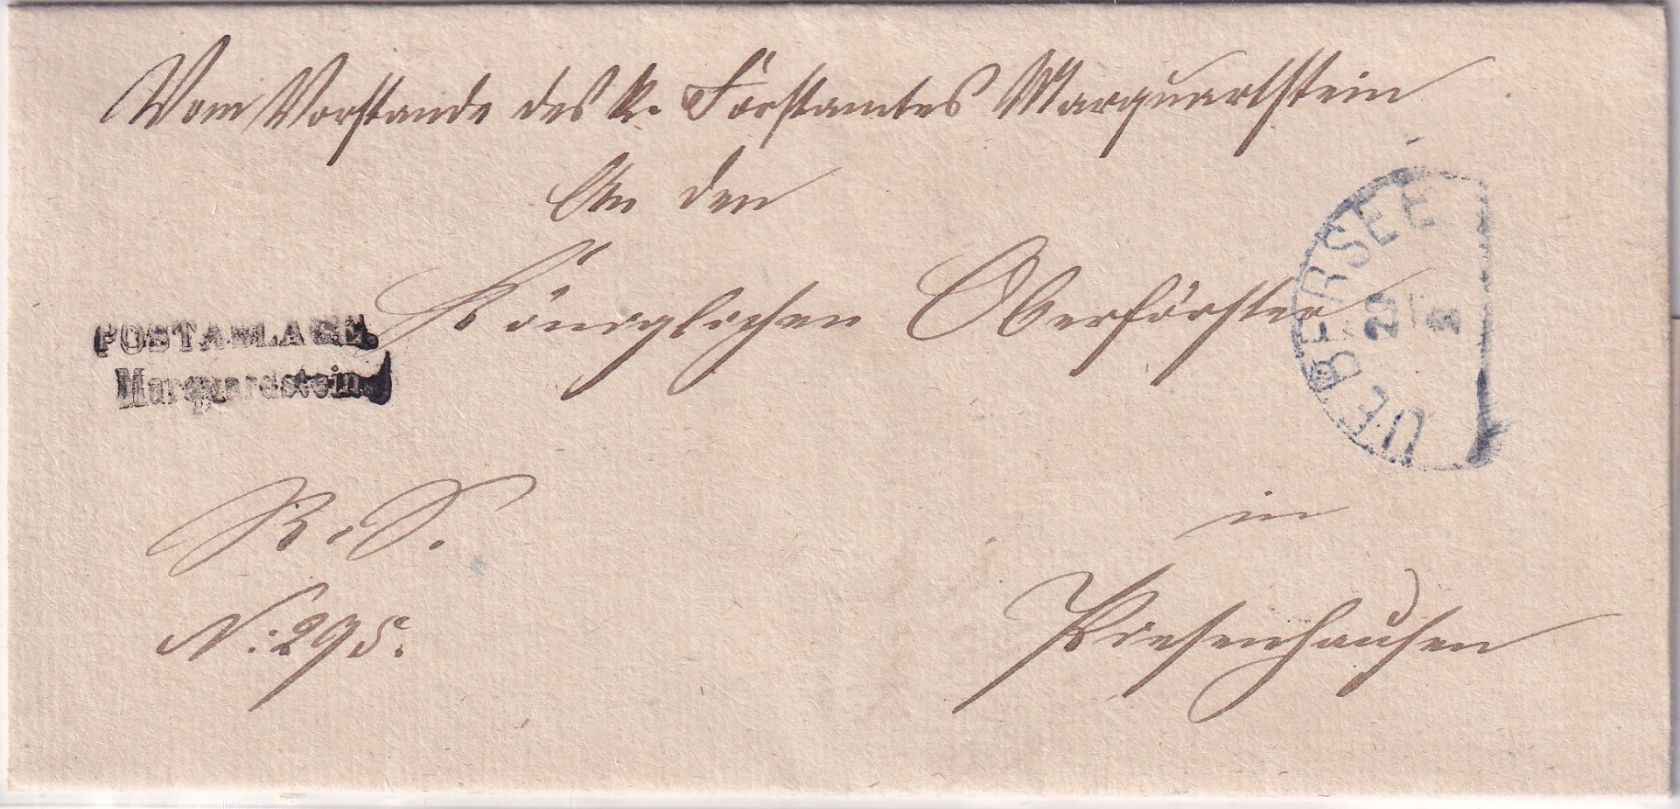 Vom Vorstande des k. Forstamtes Marquartstein
An den
Königlichen Oberförster
UEBERSEE
POSTABLAGE
Marquardstein
R. S.
in
N: 295.
Piesenhausen